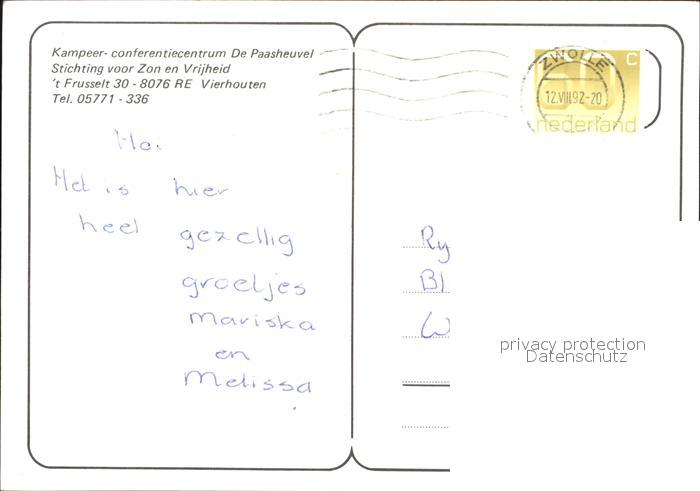 Kampeer- conferentiecentrum De Paasheuvel
Stichting voor Zon en Vrijheid
't Frusselt 30 - 8076 RE Vierhouten
Tel. 05771 - 336
Ho.
Het is hier
heel gezellig
groetjes
mariska
en
Melissa
ZWOLLE
12.VIII.92-20
60 c
nederland
Ry
Bl
W
privacy protection
Datenschutz